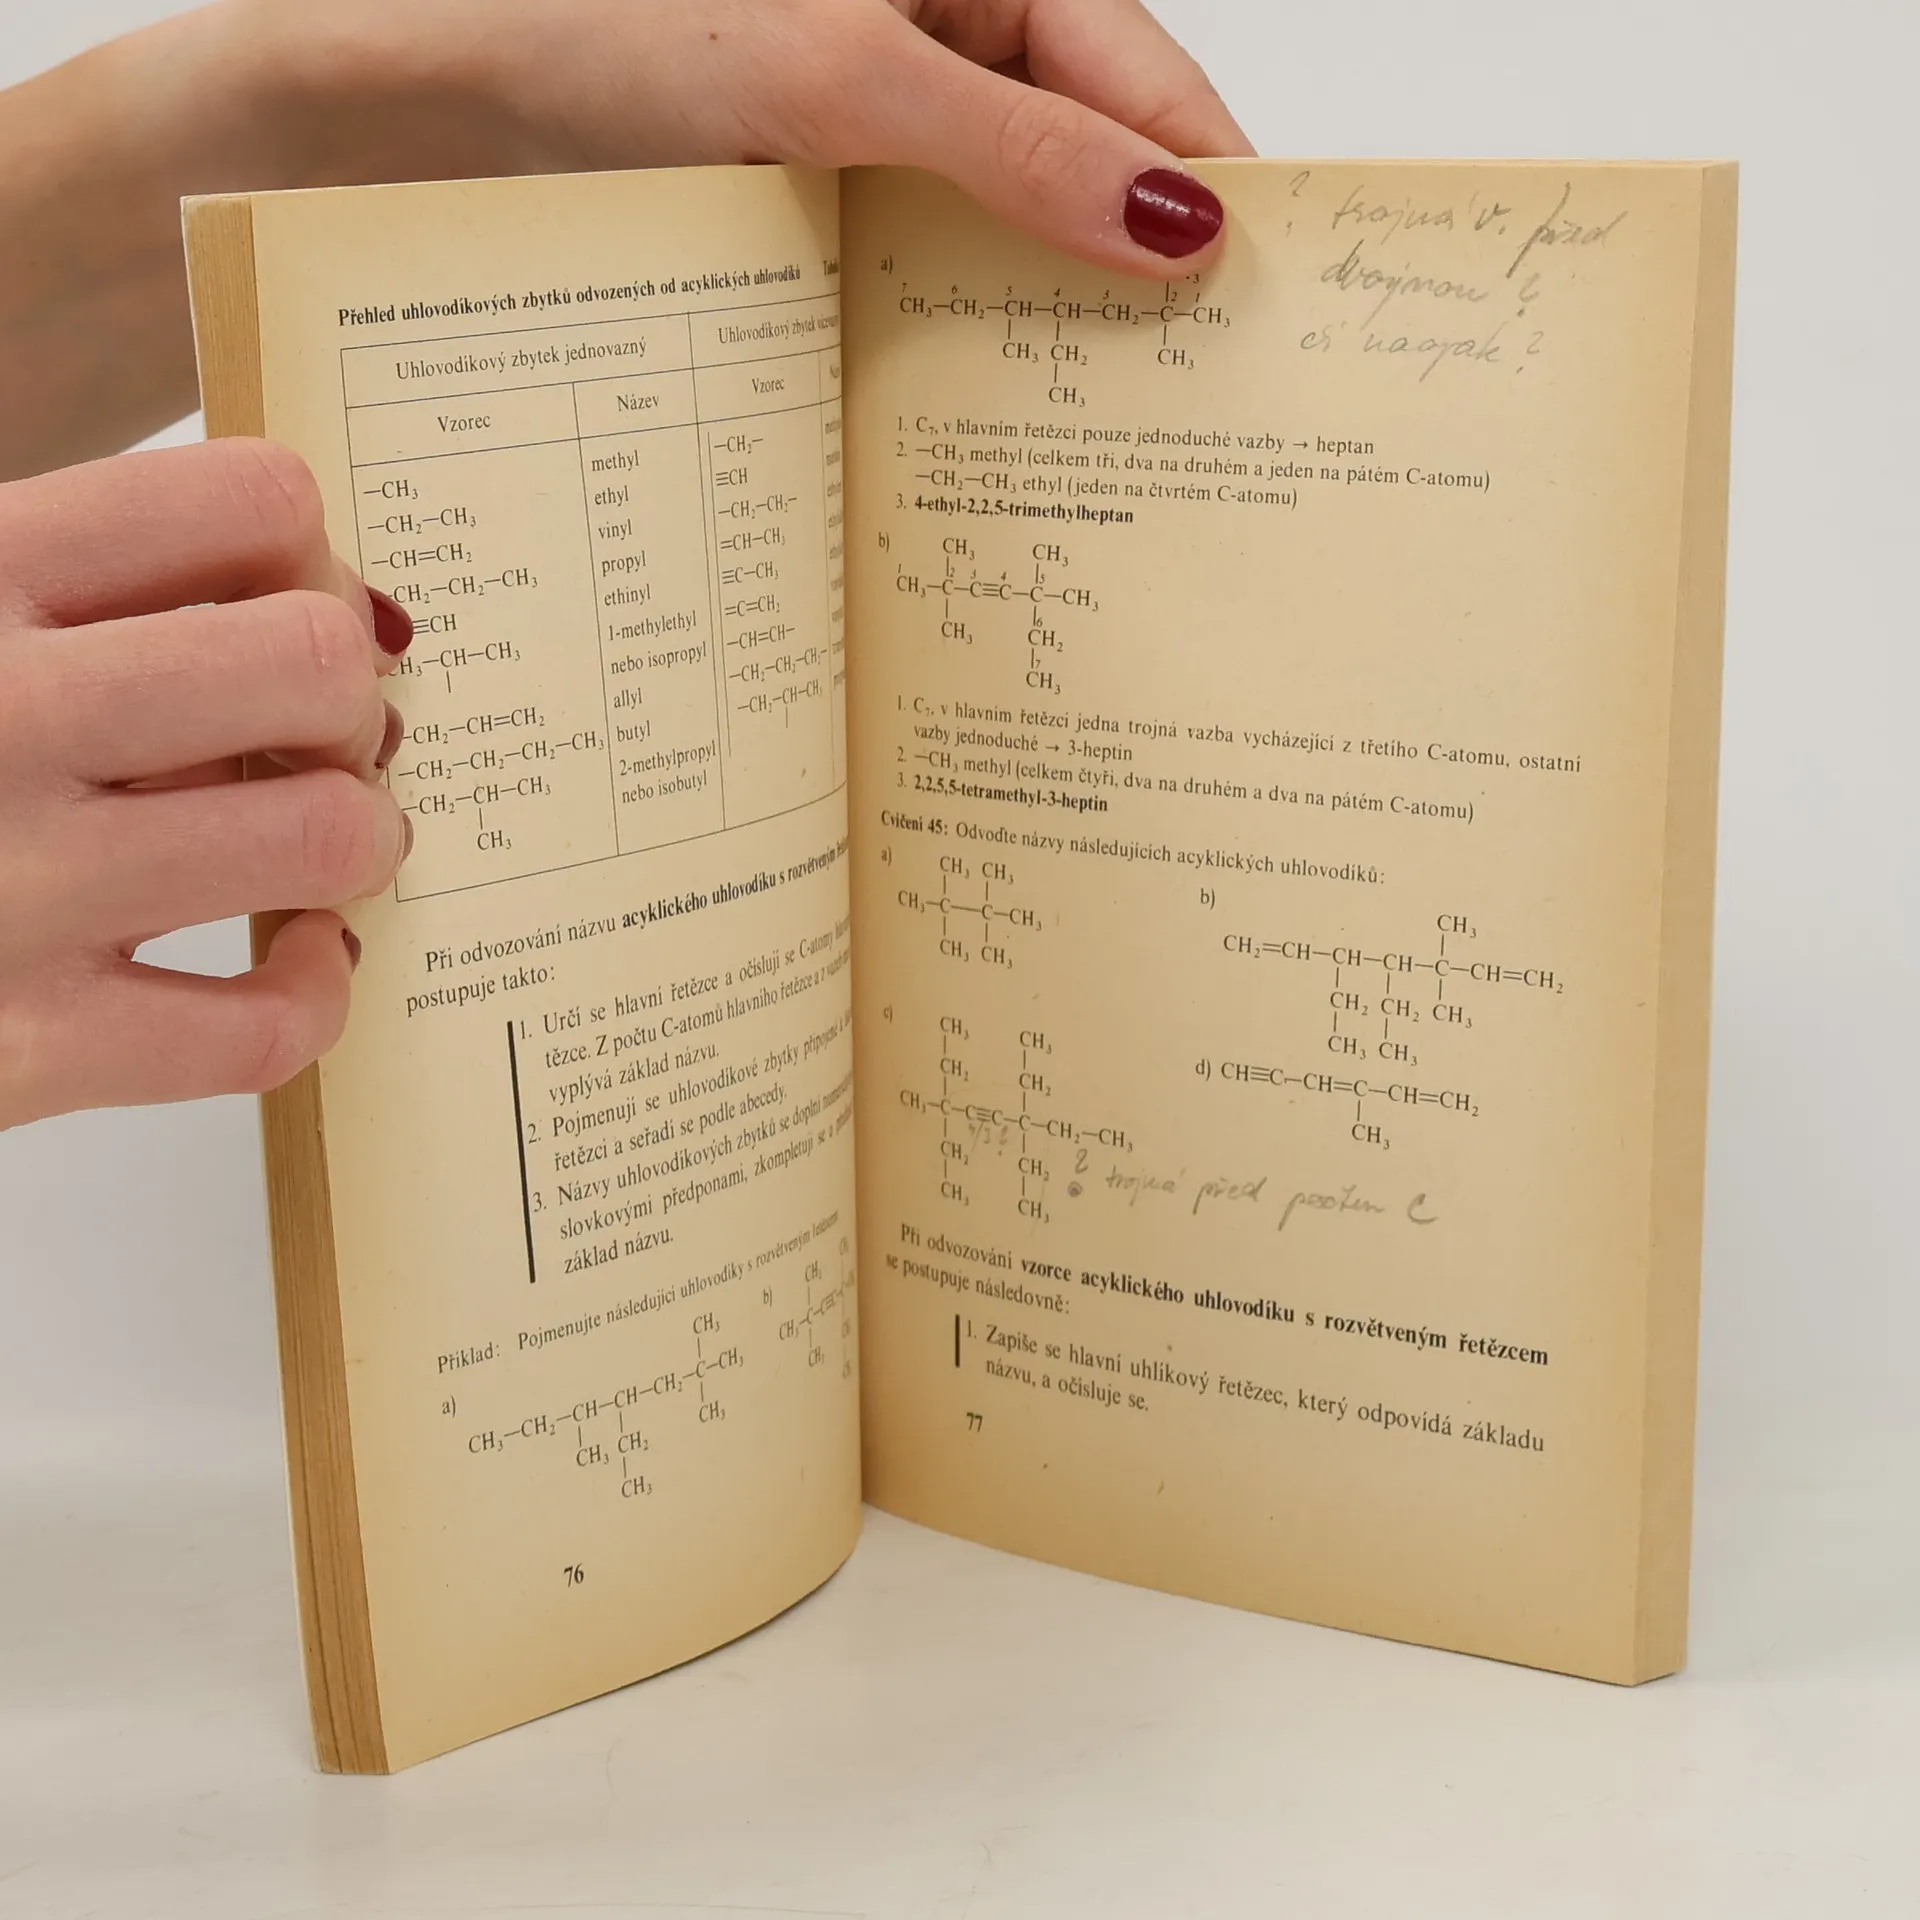 Přehled uhlovodíkových zbytků odvozených od acyklických uhlovodíků
Uhlovodíkový zbytek jednovazný
Uhlovodíkový zbytek
Vzorec
Název
Vzorec
—CH₃
methyl
—CH₂—
—CH₂—CH₃
ethyl
≡CH
—CH=CH₂
vinyl
—CH₂—CH₂—
—CH₂—CH₂—CH₃
propyl
=CH—CH₃
≡CH
ethinyl
≡C—CH₃
CH₃—CH—CH₃
1-methylethyl
nebo isopropyl
=C=CH₂
—CH=CH—
—CH₂—CH=CH₂
allyl
—CH₂—CH₂—CH₂—
—CH₂—CH₂—CH₂—CH₃
butyl
—CH₂—CH—CH₂
—CH₂—CH—CH₃
2-methylpropyl
nebo isobutyl
CH₃
Při odvozování názvu acyklického uhlovodíku s rozvětveným
postupuje takto:
1. Určí se hlavní řetězce a očíslují se C-atomy
tězce. Z počtu C-atomů hlavního řetězce a z
vyplývá základ názvu.
2. Pojmenují se uhlovodíkové zbytky připojené k
řetězci a seřadí se podle abecedy.
3. Názvy uhlovodíkových zbytků se doplní
slovkovými předponami, zkompletují se a
základ názvu.
Příklad: Pojmenujte následující uhlovodíky s rozvětveným řetězcem
a)
CH₃
CH₃—CH₂—CH—CH—CH₂—C—CH₃
CH₃ CH₂ CH₃
CH₃
b)
CH₃
CH₃—C—C≡C
CH₃
76
? trojná v. před
dvojnou ?
či naopak ?
a)
3
7 6 5 4 3 2 1
CH₃—CH₂—CH—CH—CH₂—C—CH₃
CH₃ CH₂ CH₃
CH₃
1. C₇, v hlavním řetězci pouze jednoduché vazby → heptan
2. —CH₃ methyl (celkem tři, dva na druhém a jeden na pátém C-atomu)
—CH₂—CH₃ ethyl (jeden na čtvrtém C-atomu)
3. 4-ethyl-2,2,5-trimethylheptan
b)
CH₃ CH₃
1 2 3 4 5
CH₃—C—C≡C—C—CH₃
6
CH₃ CH₂
7
CH₃
1. C₇, v hlavním řetězci jedna trojná vazba vycházející z třetího C-atomu, ostatní
vazby jednoduché → 3-heptin
2. —CH₃ methyl (celkem čtyři, dva na druhém a dva na pátém C-atomu)
3. 2,2,5,5-tetramethyl-3-heptin
Cvičení 45: Odvoďte názvy následujících acyklických uhlovodíků:
a)
CH₃ CH₃
CH₃—C—C—CH₃
CH₃ CH₃
b)
CH₃
CH₂=CH—CH—CH—C—CH=CH₂
CH₂ CH₂ CH₃
CH₃ CH₃
c)
CH₃ CH₃
CH₂ CH₂
CH₃—C—C≡C—C—CH₂—CH₃
4/3 ?
CH₂ CH₂
CH₃ CH₃
? trojná před C
d) CH≡C—CH=C—CH=CH₂
CH₃
Při odvozování vzorce acyklického uhlovodíku s rozvětveným řetězcem
se postupuje následovně:
1. Zapíše se hlavní uhlíkový řetězec, který odpovídá základu
názvu, a očísluje se.
77